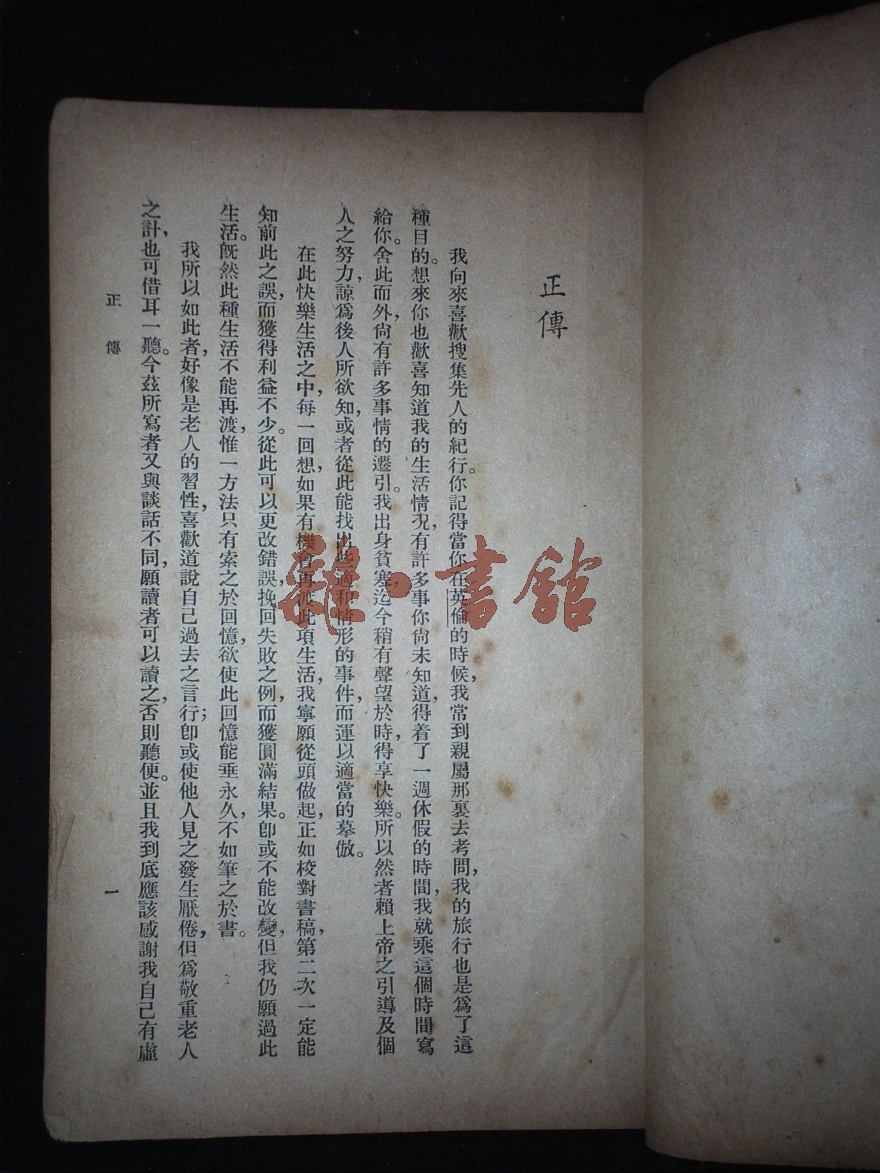 正傳
我向來喜歡搜集先人的紀行。你記得當你在英倫的時候，我常到親屬那裏去考問，我的旅行也是爲了這
種目的。想來你也歡喜知道我的生活情況，有許多事你尙未知道，得着了一週休假的時間，我就乘這個時間寫
給你。舍此而外，尙有許多事情的遷引。我出身貧寒，迄今稍有聲望於時，得享快樂。所以然者賴上帝之引導及個
人之努力，諒爲後人所欲知，或者從此能找出此適和情形的事件，而運以適當的摹倣。
在此快樂生活之中，每一回想，如果有機會再此項生活，我寧願從頭做起，正如校對書稿，第二次一定能
知前此之誤，而獲得利益不少。從此可以更改錯誤，挽回失敗之例，而獲圓滿結果。卽或不能改變，但我仍願過此
生活。旣然此種生活不能再渡，惟一方法只有索之於回憶，欲使此回憶能垂永久，不如筆之於書。
我所以如此者，好像是老人的習性，喜歡道說自己過去之言行；卽或使他人見之發生厭倦，但爲敬重老人
之計，也可借耳一聽。今茲所寫者又與談話不同，願讀者可以讀之，否則聽便。並且我到底應該感謝我自己有虛
正傳
一
雜·書館